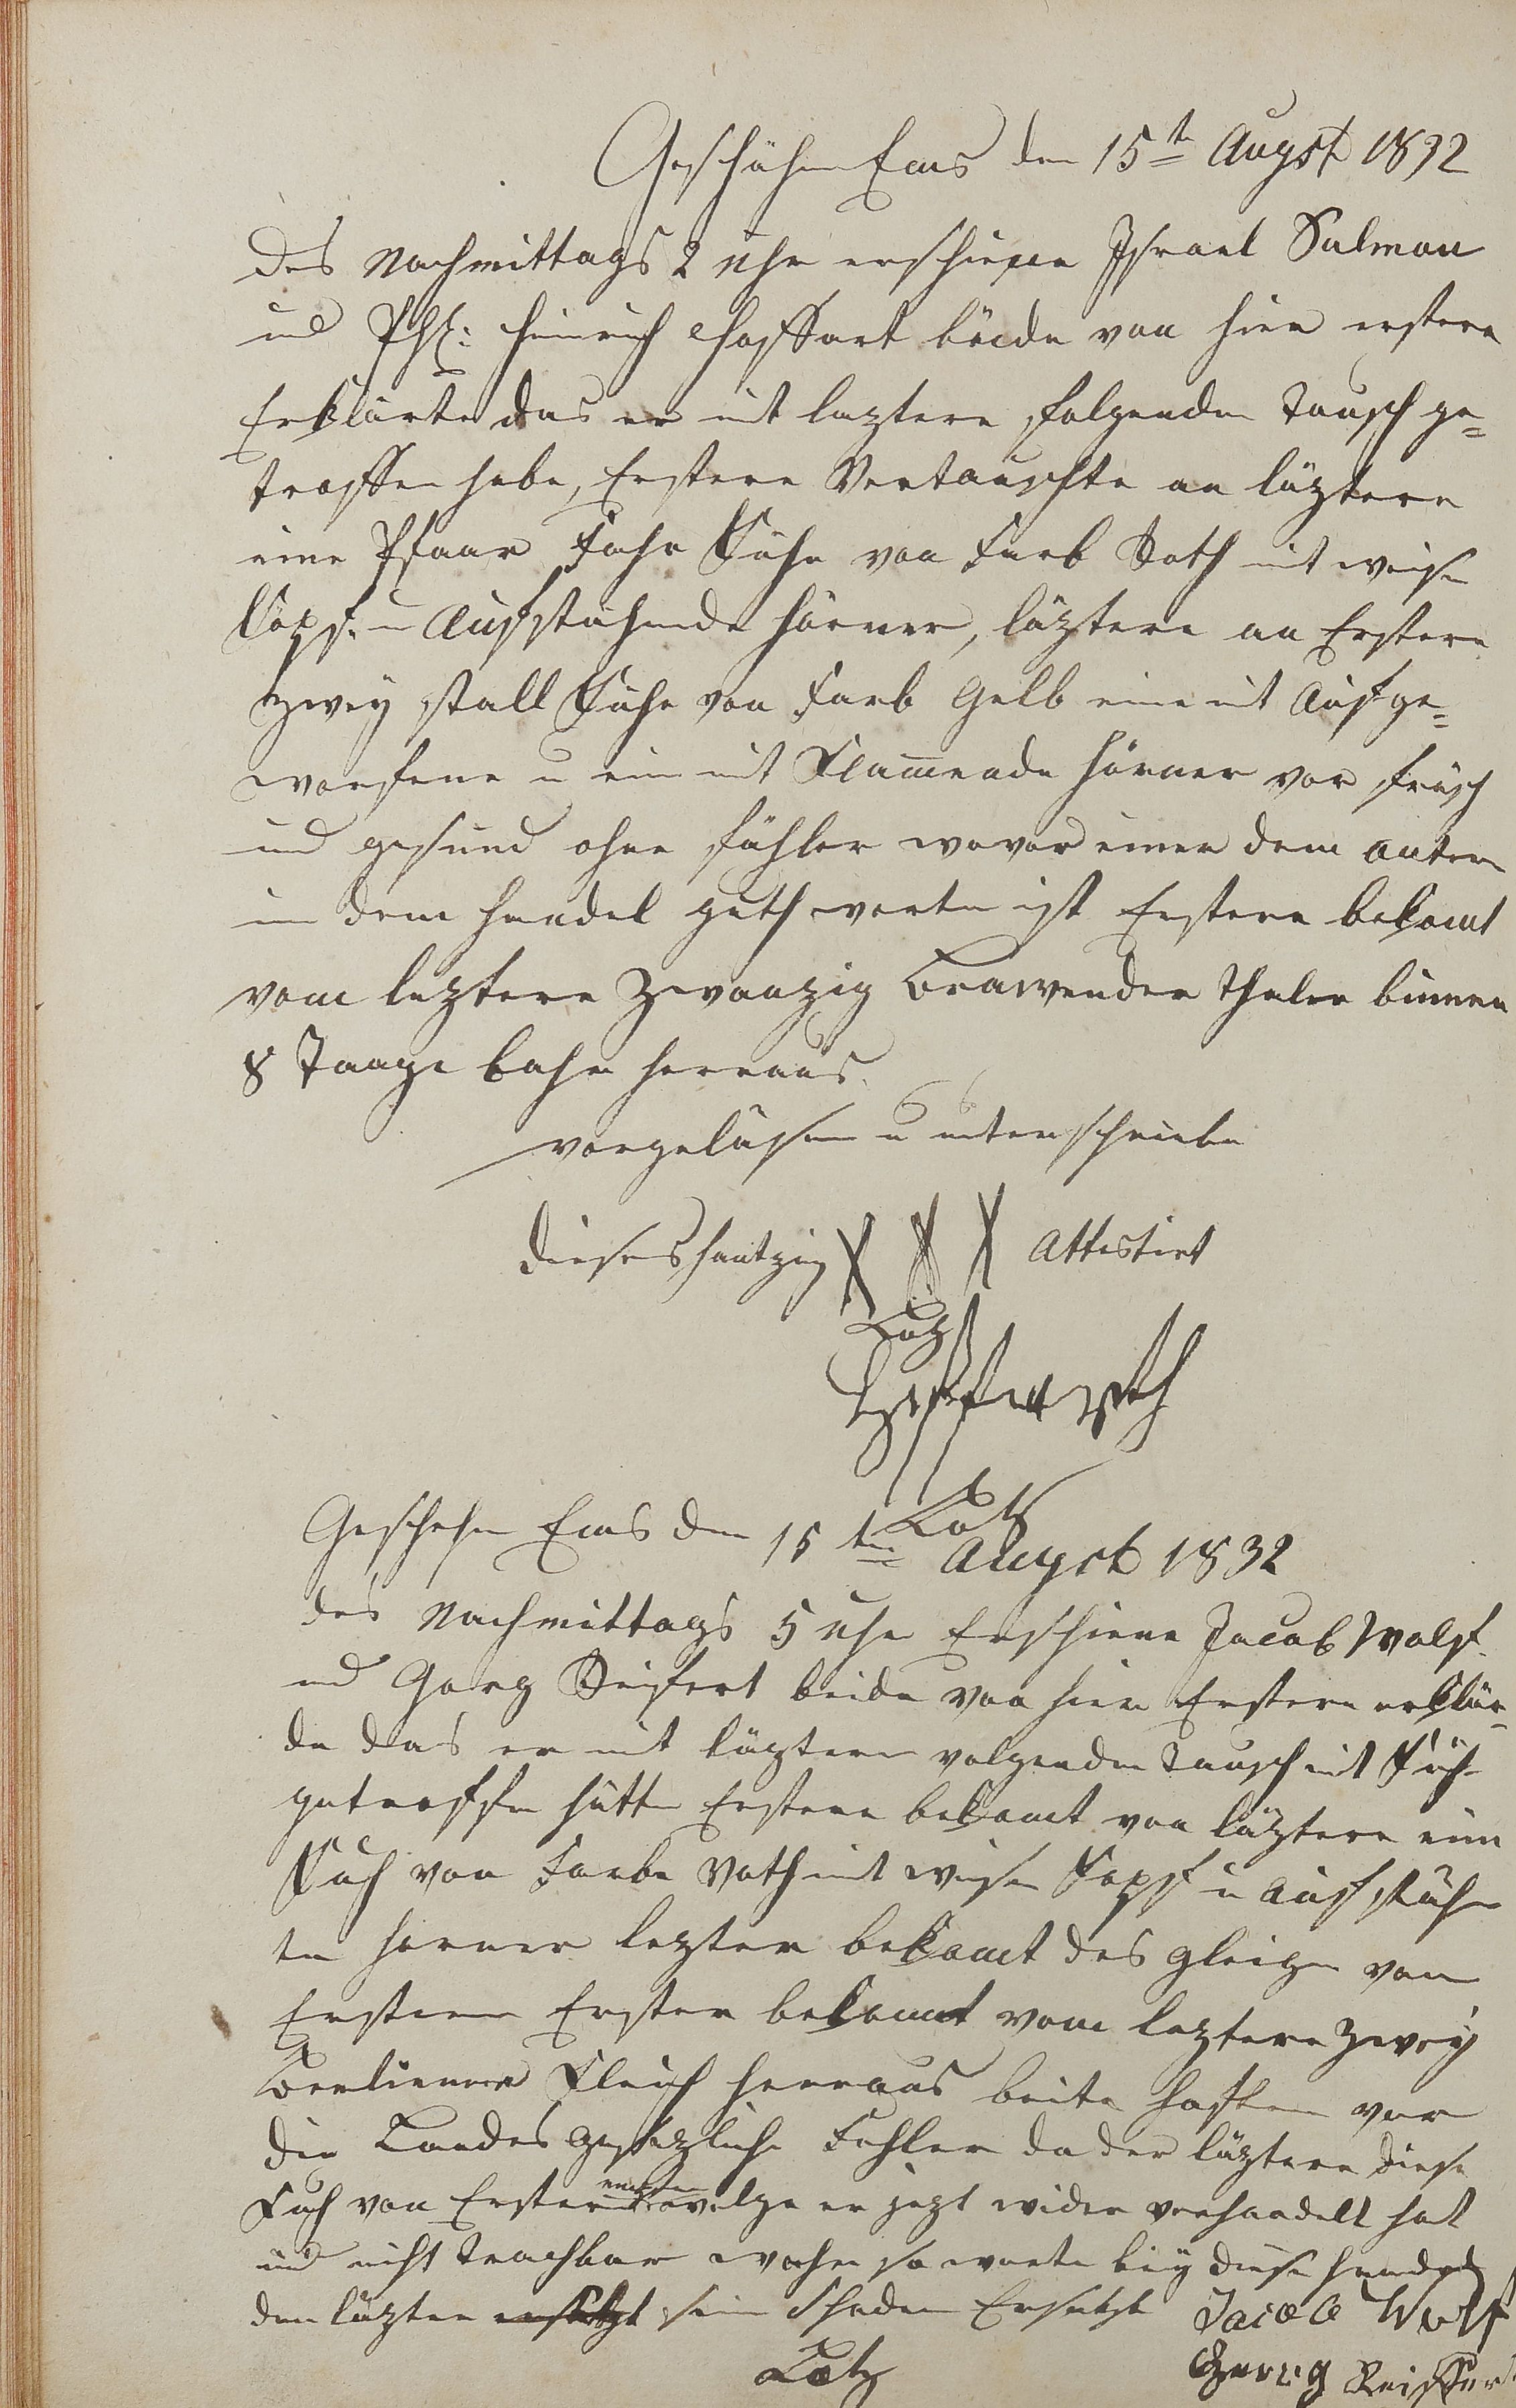 Geschähen Ems den 15ten Augst 1832
des Nachmittags 2 Uhr erschiene Israel Salmon
und Phl: Heinrich Hoffart beide von hier erstere
Erklärte das er mit leztere folgenden Tausch ge-
troffen habe, Erstere Vertauschte an läztere
eine Pfaar Fahr Kühe von Farb Roth mit weise
Kopf u Aufstähende Hörner, läztere an Erstere
Zwey stall Kühe von Farb Gelb eine mit Aufge-
worfene u ein mit Flamende Hörner vor frisch
und gesund ohne fähler wovor einer dem antern
in dem handel guth worten ist Erstere bekomt
vom leztere Zwanzig Brawender Thaler binnen
8 Taage bahr herraus.
vorgeläsen u unterschrieben
dieses handzeig XXX Attestirt
Lotz
Lotz
Geschehen Ems den 15ten Augst 1832
des Nachmittags 5 Uhr Erschiene Jacob Wolf
und Gorg Reifert beide von hier Erstere erklär-
de das er mit läztern volgenden Tausch mit Küh
getroffen hätte Erstere bekomt von läztere eine
Kuh von Farbe Roth mit weise Kopf u Aufstähen
ten horner lezter bekomt des gleigen von
Erstern Erster bekommt vom leztere zwey
Fleisch herraus beite haften vor
die Landes gesäzliche Fehler da der läztere diese
Kuh von Erstern welge er jezt wider verhandelt hat
und nicht Trachbar wahr so worte bey diese handel
den läzten sein Schaden Ersetzt Jacob Wolf
Lotz Georg Reiffert